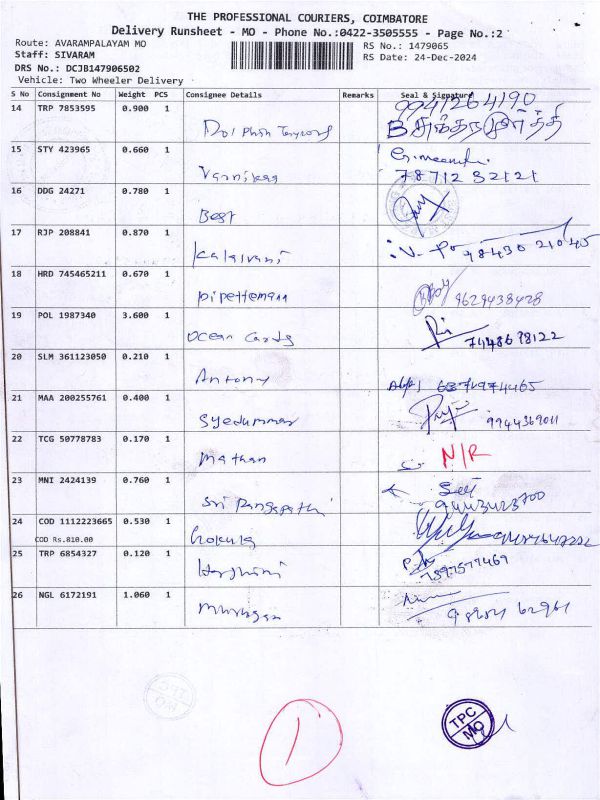 THE PROFESSIONAL COURIERS, COIMBATORE
Delivery Runsheet - MO - Phone No.:0422-3505555 - Page No.:2
Route: AVARAMPALAYAM MO
Staff: SIVARAM
DRS No.: DCJB147906502
Vehicle: Two Wheeler Delivery
RS No.: 1479065
RS Date: 24-Dec-2024
S No Consignment No Weight PCS Consignee Details Remarks Seal & Signature
14 TRP 7853595 0.900 1 Dolphin 9941264190
15 STY 423965 0.660 1 Varnikaa 78712 32121
16 DDG 24271 0.780 1 Best
17 RJP 208841 0.870 1 Kalaivani 98430 21045
18 HRD 745465211 0.670 1 pipetteman 9629438428
19 POL 1987340 3.600 1 Ocean Cards
20 SLM 361123050 0.210 1 Antony
21 MAA 200255761 0.400 1 Syedummar 9944369011
22 TCG 50778783 0.170 1 Mathan N/R
23 MNI 2424139 0.760 1 Sri Rangapathi
24 COD 1112223665 0.530 1 Gokula
COD Rs.810.00
25 TRP 6854327 0.120 1 Harshini 7397577469
26 NGL 6172191 1.060 1 Murugan
1
TPC
MO